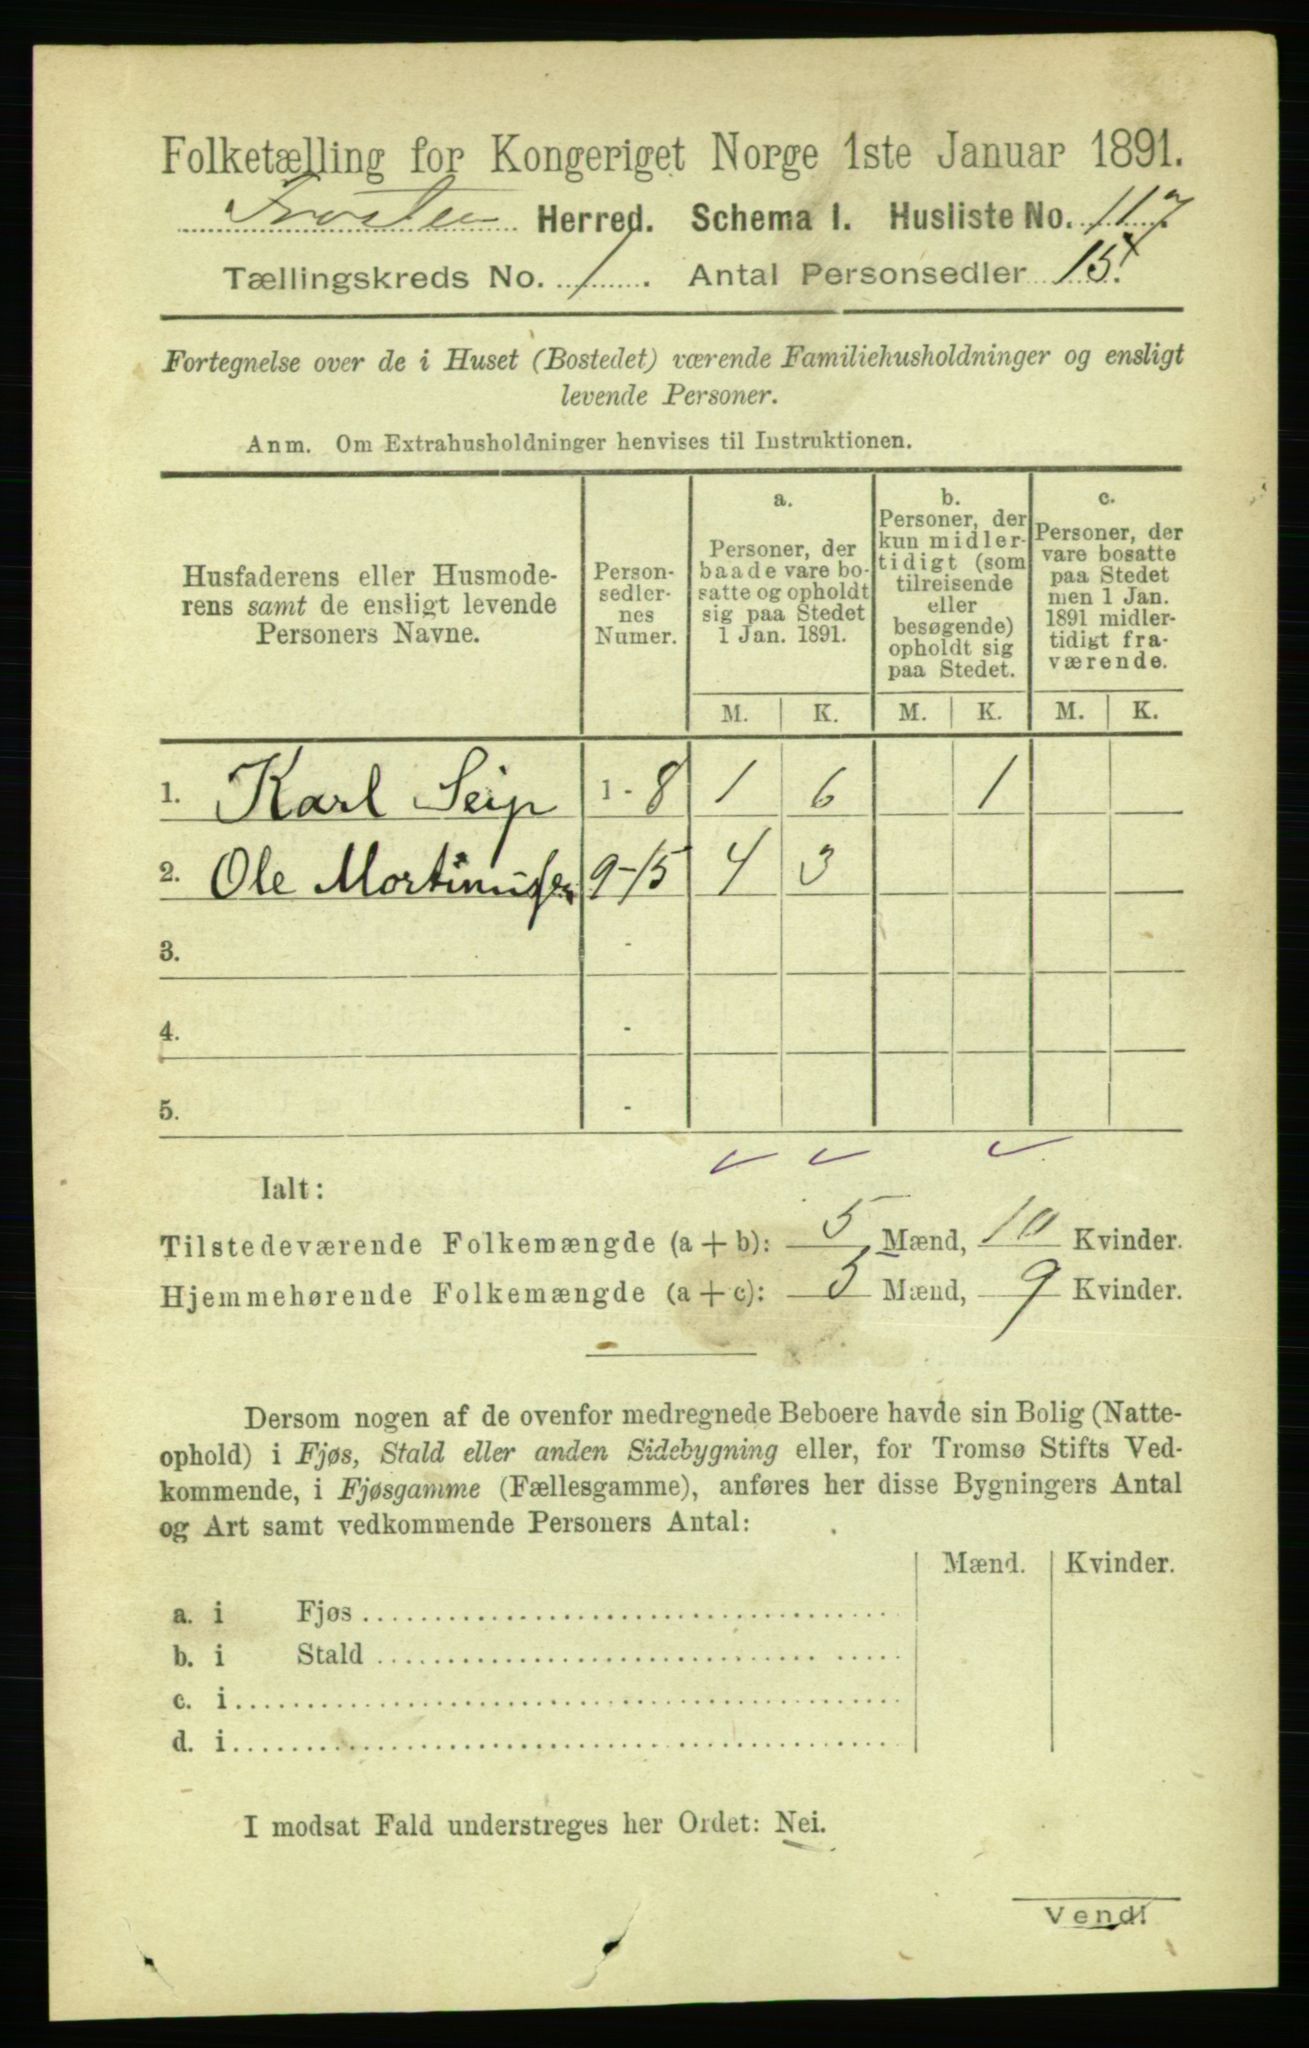 Folketælling for Kongeriget Norge 1ste Januar 1891.
Frosten Herred. Schema I. Husliste No. 117
Tællingskreds No. 1. Antal Personsedler 15.
Fortegnelse over de i Huset (Bostedet) værende Familiehusholdninger og ensligt
levende Personer.
Anm. Om Extrahusholdninger henvises til Instruktionen.
Husfaderens eller Husmode-
rens samt de ensligt levende
Personers Navne.
Person-
sedler-
nes
Numer.
a.
Personer, der
baade vare bo-
satte og opholdt
sig paa Stedet
1 Jan. 1891.
b.
Personer, der
kun midler-
tidigt (som
tilreisende
eller
besøgende)
opholdt sig
paa Stedet.
c.
Personer, der
vare bosatte
paa Stedet
men 1 Jan.
1891 midler-
tidigt fra-
værende.
M. K. M. K. M. K.
1. Karl Seip 1 - 8 1 6 1
2. Ole Mortinusen 9-15 4 3
3. -
4. -
5. -
Ialt:
Tilstedeværende Folkemængde (a + b): 5 Mænd, 10 Kvinder.
Hjemmehørende Folkemængde (a + c): 5 Mænd, 9 Kvinder.
Dersom nogen af de ovenfor medregnede Beboere havde sin Bolig (Natte-
ophold) i Fjøs, Stald eller anden Sidebygning eller, for Tromsø Stifts Ved-
kommende, i Fjøsgamme (Fællesgamme), anføres her disse Bygningers Antal
og Art samt vedkommende Personers Antal:
Mænd. Kvinder.
a. i Fjøs
b. i Stald
c. i
d. i
I modsat Fald understreges her Ordet: Nei.
Vend!